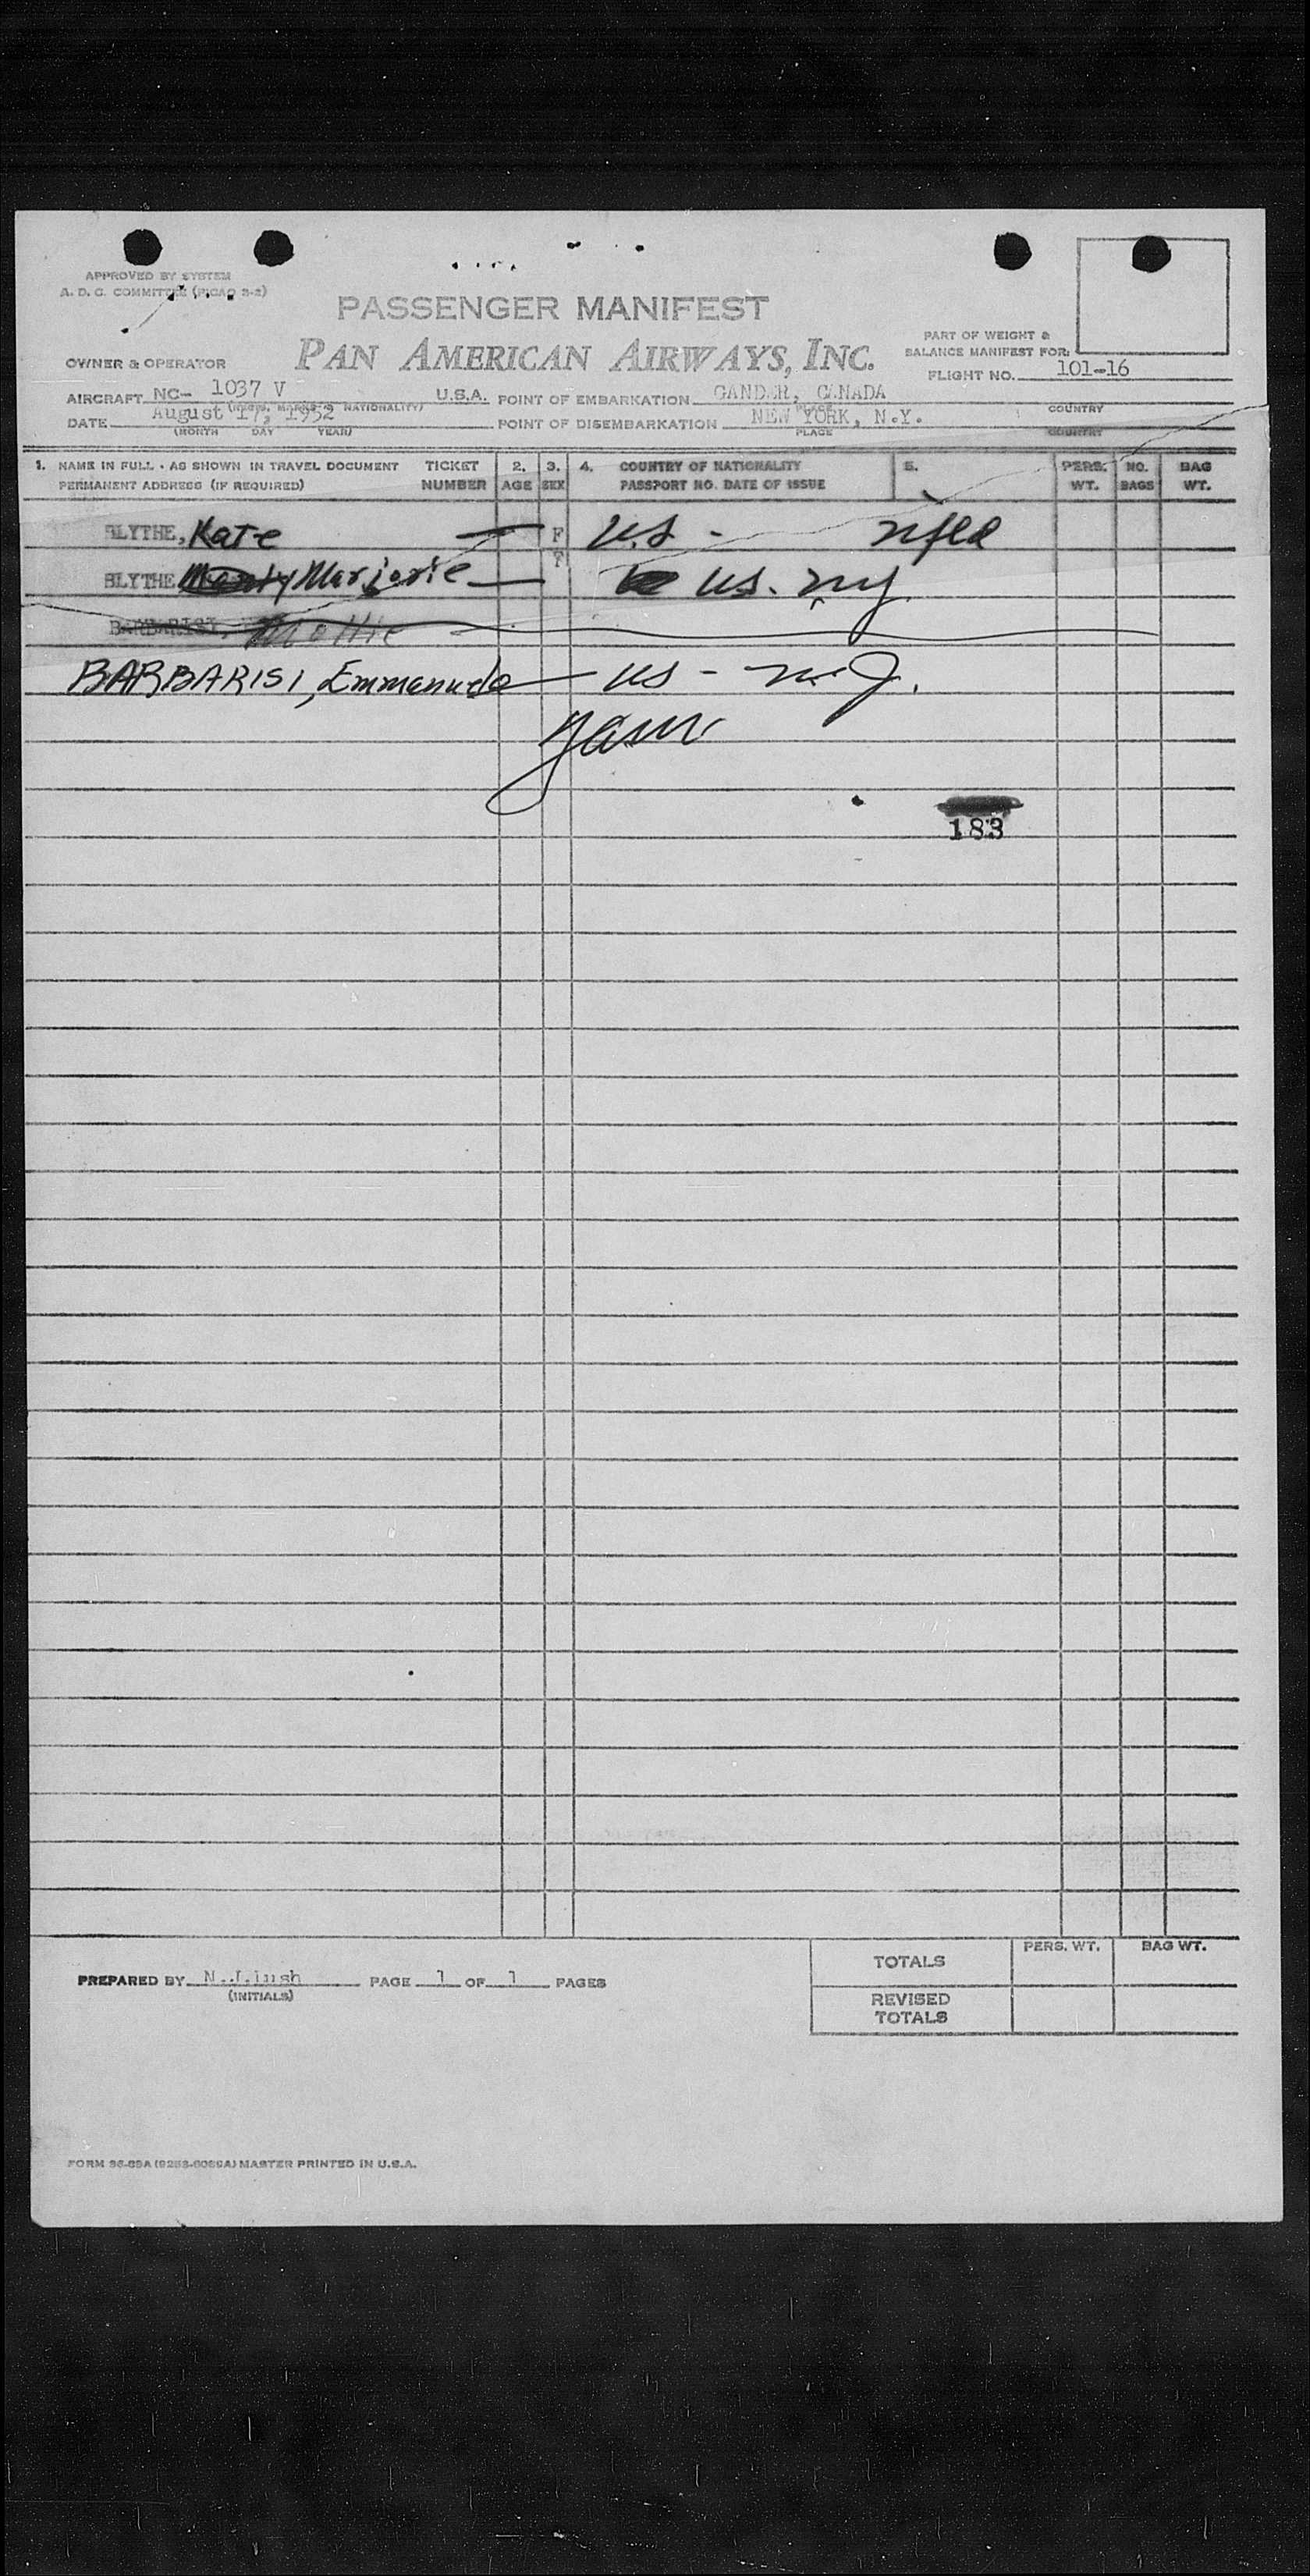 APPROVED BY SYSTEM
A. D. C. COMMITTEE (PICAO 2-2)
PASSENGER MANIFEST
OWNER & OPERATOR PAN AMERICAN AIRWAYS, INC.
PART OF WEIGHT &
BALANCE MANIFEST FOR
FLIGHT NO. 101-16
AIRCRAFT NC- 1037 V U.S.A. POINT OF EMBARKATION GANDER, CANADA
NATIONALITY) COUNTRY
DATE August 17, 1952 POINT OF DISEMBARKATION NEW YORK, N.Y.
(MONTH DAY YEAR) PLACE COUNTRY
1. NAME IN FULL - AS SHOWN IN TRAVEL DOCUMENT TICKET 2. 3. 4. COUNTRY OF NATIONALITY 5. PERS. NO. BAG
PERMANENT ADDRESS (IF REQUIRED) NUMBER AGE SEX PASSPORT NO. DATE OF ISSUE WT. BAGS WT.
BLYTHE, Kate — F U.S - nfld
BLYTHE Marjorie — F US. ny
BARBARISI, Mollie
BARBARISI, Emmanuele — US - N.J.
183
PREPARED BY N.J.Lush PAGE 1 OF 1 PAGES
(INITIALS)
PERS. WT. BAG WT.
TOTALS
REVISED
TOTALS
MASTER PRINTED IN U.S.A.